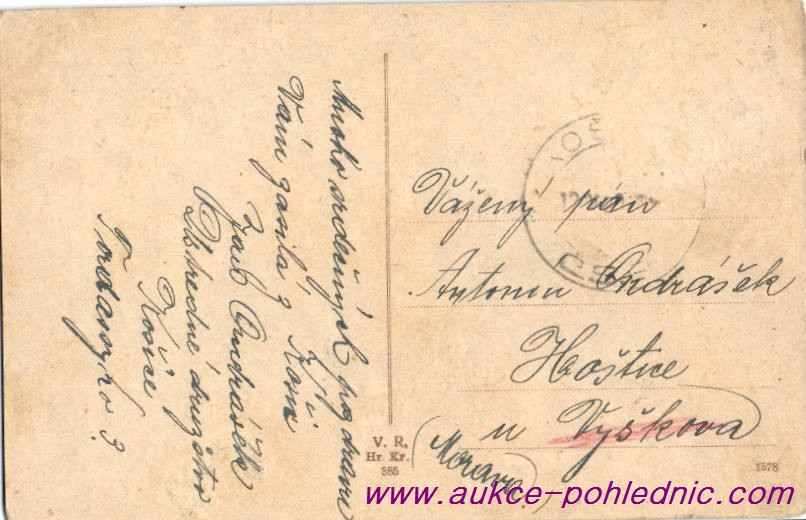 Mnoho srdečných pozdravů
Vám zasílá z Košic
Ondrášek
Ústředné družstvo
Košice
3
Vážený pán
Antonin Ondrášek
Hoštice
u Vyškova
(Morava)
V. R.
Hr. Kr.
385
1578
www.aukce-pohlednic.com